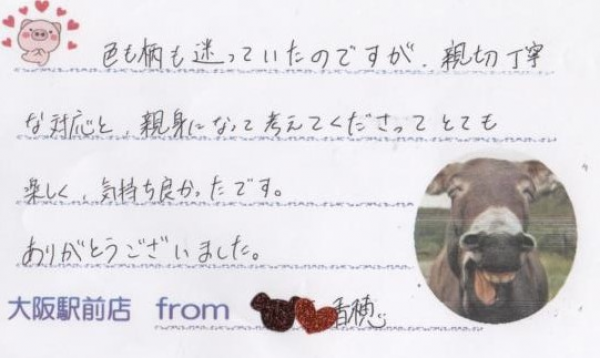 色も柄も迷っていたのですが、親切丁寧
な対応と、親身になって考えてくださってとても
楽しく、気持ち良かったです。
ありがとうございました。
大阪駅前店 from 香穂